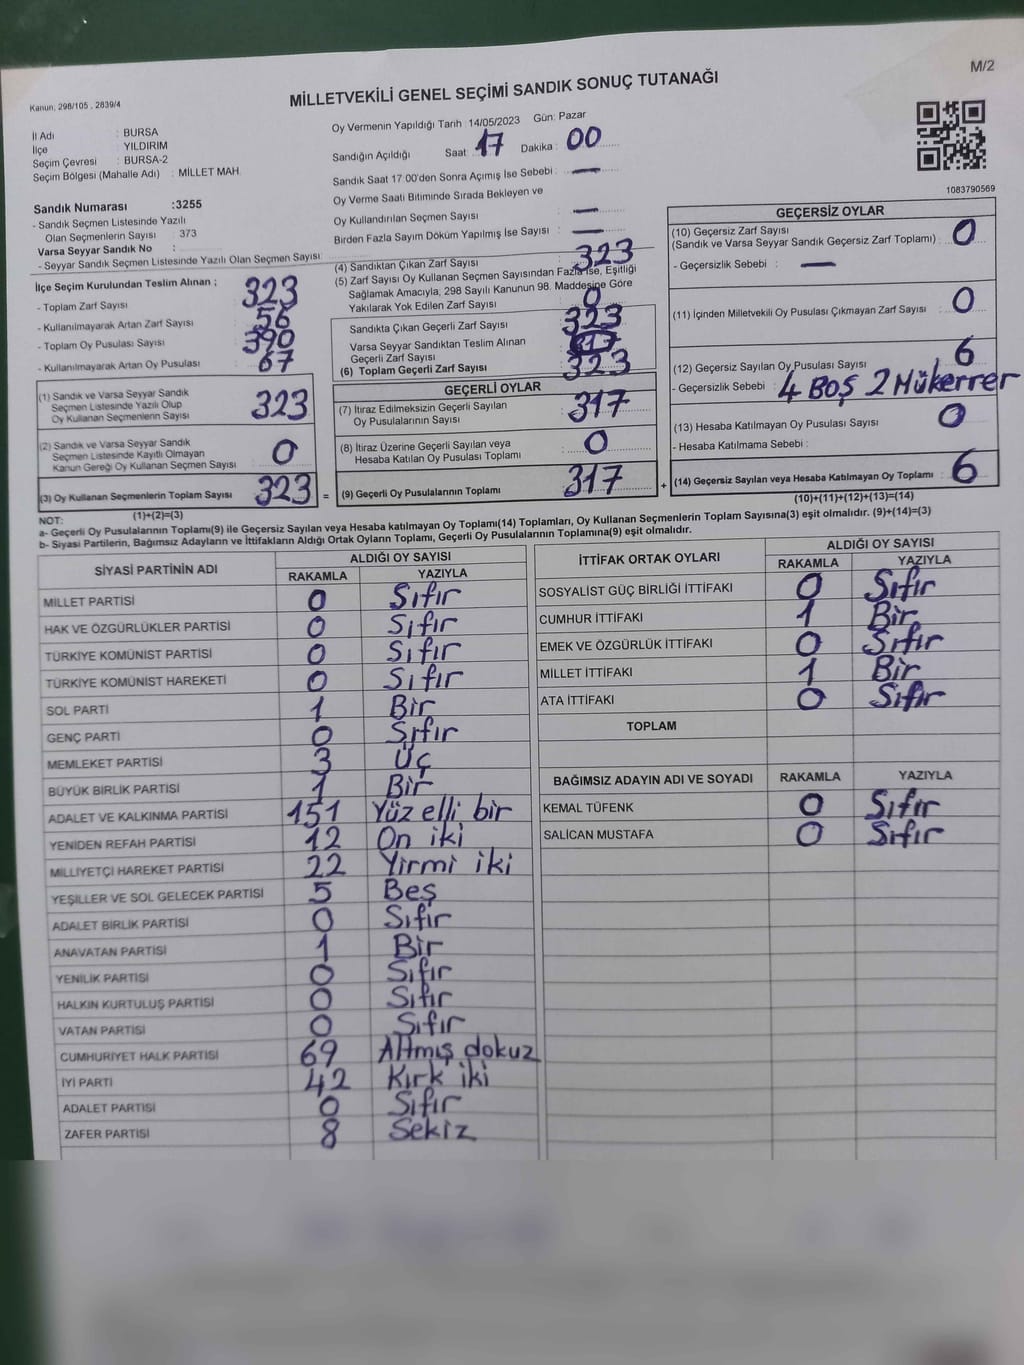 M/2
Kanun, 298/105 , 2839/4
MİLLETVEKİLİ GENEL SEÇİMİ SANDIK SONUÇ TUTANAĞI
İl Adı : BURSA
İlçe : YILDIRIM
Seçim Çevresi : BURSA-2
Seçim Bölgesi (Mahalle Adı) : MİLLET MAH.
Sandık Numarası :3255
- Sandık Seçmen Listesinde Yazılı
Olan Seçmenlerin Sayısı : 373
Varsa Seyyar Sandık No :
- Seyyar Sandık Seçmen Listesinde Yazılı Olan Seçmen Sayısı :
İlçe Seçim Kurulundan Teslim Alınan ;
- Toplam Zarf Sayısı : 323
- Kullanılmayarak Artan Zarf Sayısı : 56
- Toplam Oy Pusulası Sayısı : 390
- Kullanılmayarak Artan Oy Pusulası : 67
(1) Sandık ve Varsa Seyyar Sandık
Seçmen Listesinde Yazılı Olup
Oy Kullanan Seçmenlerin Sayısı 323
(2) Sandık ve Varsa Seyyar Sandık
Seçmen Listesinde Kayıtlı Olmayan
Kanun Gereği Oy Kullanan Seçmen Sayısı 0
(3) Oy Kullanan Seçmenlerin Toplam Sayısı 323 =
(1)+(2)=(3)
Oy Vermenin Yapıldığı Tarih : 14/05/2023 Gün: Pazar
Sandığın Açıldığı Saat : 17 Dakika : 00
Sandık Saat 17:00'den Sonra Açımış İse Sebebi : —
Oy Verme Saati Bitiminde Sırada Bekleyen ve
Oy Kullandırılan Seçmen Sayısı : —
Birden Fazla Sayım Döküm Yapılmış İse Sayısı : —
(4) Sandıktan Çıkan Zarf Sayısı : 323
(5) Zarf Sayısı Oy Kullanan Seçmen Sayısından Fazla İse, Eşitliği
Sağlamak Amacıyla, 298 Sayılı Kanunun 98. Maddesine Göre
Yakılarak Yok Edilen Zarf Sayısı : 0
Sandıkta Çıkan Geçerli Zarf Sayısı : 323
Varsa Seyyar Sandıktan Teslim Alınan
Geçerli Zarf Sayısı :
(6) Toplam Geçerli Zarf Sayısı : 323
GEÇERLİ OYLAR
(7) İtiraz Edilmeksizin Geçerli Sayılan
Oy Pusulalarının Sayısı : 317
(8) İtiraz Üzerine Geçerli Sayılan veya
Hesaba Katılan Oy Pusulası Toplamı : 0
(9) Geçerli Oy Pusulalarının Toplamı : 317 +
1083790569
GEÇERSİZ OYLAR
(10) Geçersiz Zarf Sayısı
(Sandık ve Varsa Seyyar Sandık Geçersiz Zarf Toplamı) : 0
- Geçersizlik Sebebi : —
(11) İçinden Milletvekili Oy Pusulası Çıkmayan Zarf Sayısı : 0
(12) Geçersiz Sayılan Oy Pusulası Sayısı : 6
- Geçersizlik Sebebi : 4 Boş 2 Mükerrer
(13) Hesaba Katılmayan Oy Pusulası Sayısı : 0
- Hesaba Katılmama Sebebi :
(14) Geçersiz Sayılan veya Hesaba Katılmayan Oy Toplamı : 6
(10)+(11)+(12)+(13)=(14)
NOT:
a- Geçerli Oy Pusulalarının Toplamı(9) ile Geçersiz Sayılan veya Hesaba katılmayan Oy Toplamı(14) Toplamları, Oy Kullanan Seçmenlerin Toplam Sayısına(3) eşit olmalıdır. (9)+(14)=(3)
b- Siyasi Partilerin, Bağımsız Adayların ve İttifakların Aldığı Ortak Oyların Toplamı, Geçerli Oy Pusulalarının Toplamına(9) eşit olmalıdır.
SİYASİ PARTİNİN ADI ALDIĞI OY SAYISI
RAKAMLA YAZIYLA
MİLLET PARTİSİ 0 Sıfır
HAK VE ÖZGÜRLÜKLER PARTİSİ 0 Sıfır
TÜRKİYE KOMÜNİST PARTİSİ 0 Sıfır
TÜRKİYE KOMÜNİST HAREKETİ 0 Sıfır
SOL PARTİ 1 Bir
GENÇ PARTİ 0 Sıfır
MEMLEKET PARTİSİ 3 Üç
BÜYÜK BİRLİK PARTİSİ 1 Bir
ADALET VE KALKINMA PARTİSİ 151 Yüz elli bir
YENİDEN REFAH PARTİSİ 12 On iki
MİLLİYETÇİ HAREKET PARTİSİ 22 Yirmi iki
YEŞİLLER VE SOL GELECEK PARTİSİ 5 Beş
ADALET BİRLİK PARTİSİ 0 Sıfır
ANAVATAN PARTİSİ 1 Bir
YENİLİK PARTİSİ 0 Sıfır
HALKIN KURTULUŞ PARTİSİ 0 Sıfır
VATAN PARTİSİ 0 Sıfır
CUMHURİYET HALK PARTİSİ 69 Altmış dokuz
İYİ PARTİ 42 Kırk iki
ADALET PARTİSİ 0 Sıfır
ZAFER PARTİSİ 8 Sekiz
İTTİFAK ORTAK OYLARI ALDIĞI OY SAYISI
RAKAMLA YAZIYLA
SOSYALİST GÜÇ BİRLİĞİ İTTİFAKI 0 Sıfır
CUMHUR İTTİFAKI 1 Bir
EMEK VE ÖZGÜRLÜK İTTİFAKI 0 Sıfır
MİLLET İTTİFAKI 1 Bir
ATA İTTİFAKI 0 Sıfır
TOPLAM
BAĞIMSIZ ADAYIN ADI VE SOYADI RAKAMLA YAZIYLA
KEMAL TÜFENK 0 Sıfır
SALİCAN MUSTAFA 0 Sıfır